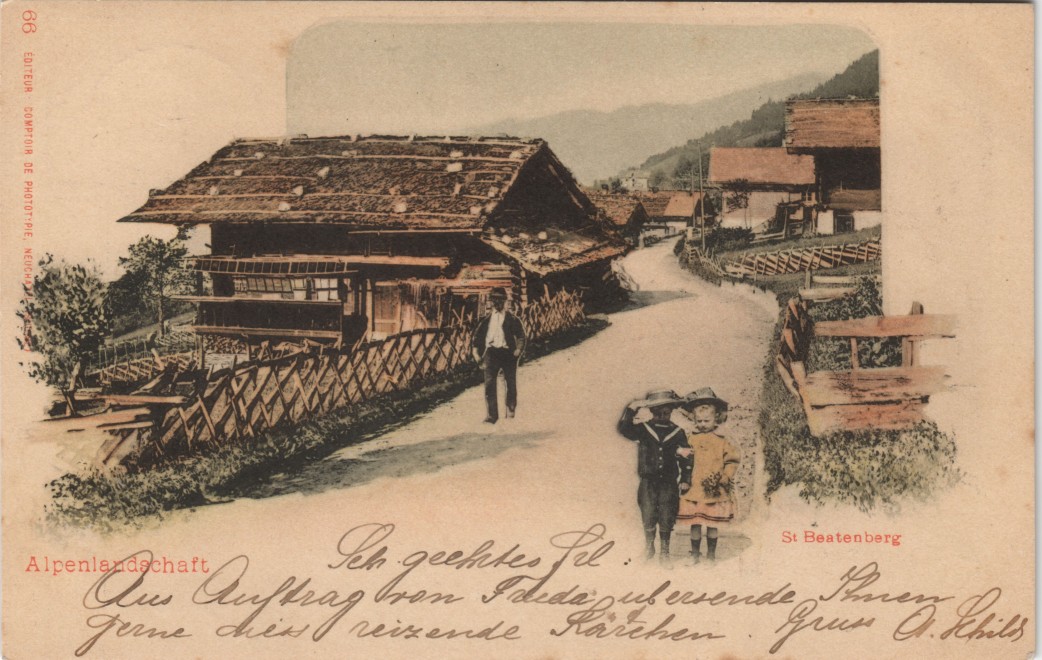 66 EDITEUR COMPTOIR DE PHOTOTYPIE, NEUCHA
St Beatenberg
Alpenlandschaft
Sch geehrtes Frl :
Aus Auftrag von Frieda übersende Ihnen
gerne dies reizende Kärtchen . Gruss A. Schild